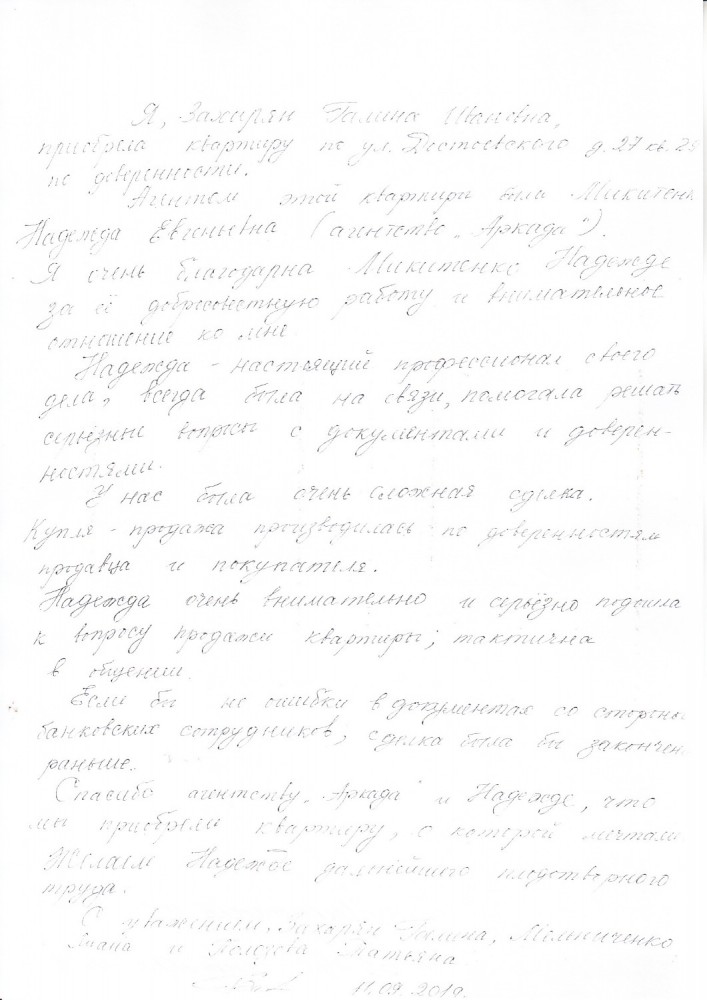 Я, Захирян Галина Ивановна,
приобрела квартиру по ул. Достоевского д. 27 кв. 25
по доверенности.
Агентом этой квартиры была Микитенк
Надежда Евгеньевна (агентство „Аркада").
Я очень благодарна Микитенко Надежде
за её добросовестную работу и внимательное
отношение ко мне.
Надежда - настоящий профессионал своего
дела, всегда была на связи, помогала решать
серьёзные вопросы с документами и доверен-
ностями.
У нас была очень сложная сделка.
Купля - продажа производилась по доверенностям
продавца и покупателя.
Надежда очень внимательно и серьёзно подошла
к вопросу продажи квартиры; тактична
в общении.
Если бы не ошибки в документах со стороны
банковских сотрудников, сделка была бы закончен
раньше.
Спасибо агентству „Аркада" и Надежде, что
мы приобрели квартиру, о которой мечтали
Желаем Надежде дальнейшего плодотворного
труда.
С уважением, Захарян Галина,
и Татьяна
11.09.2019г.